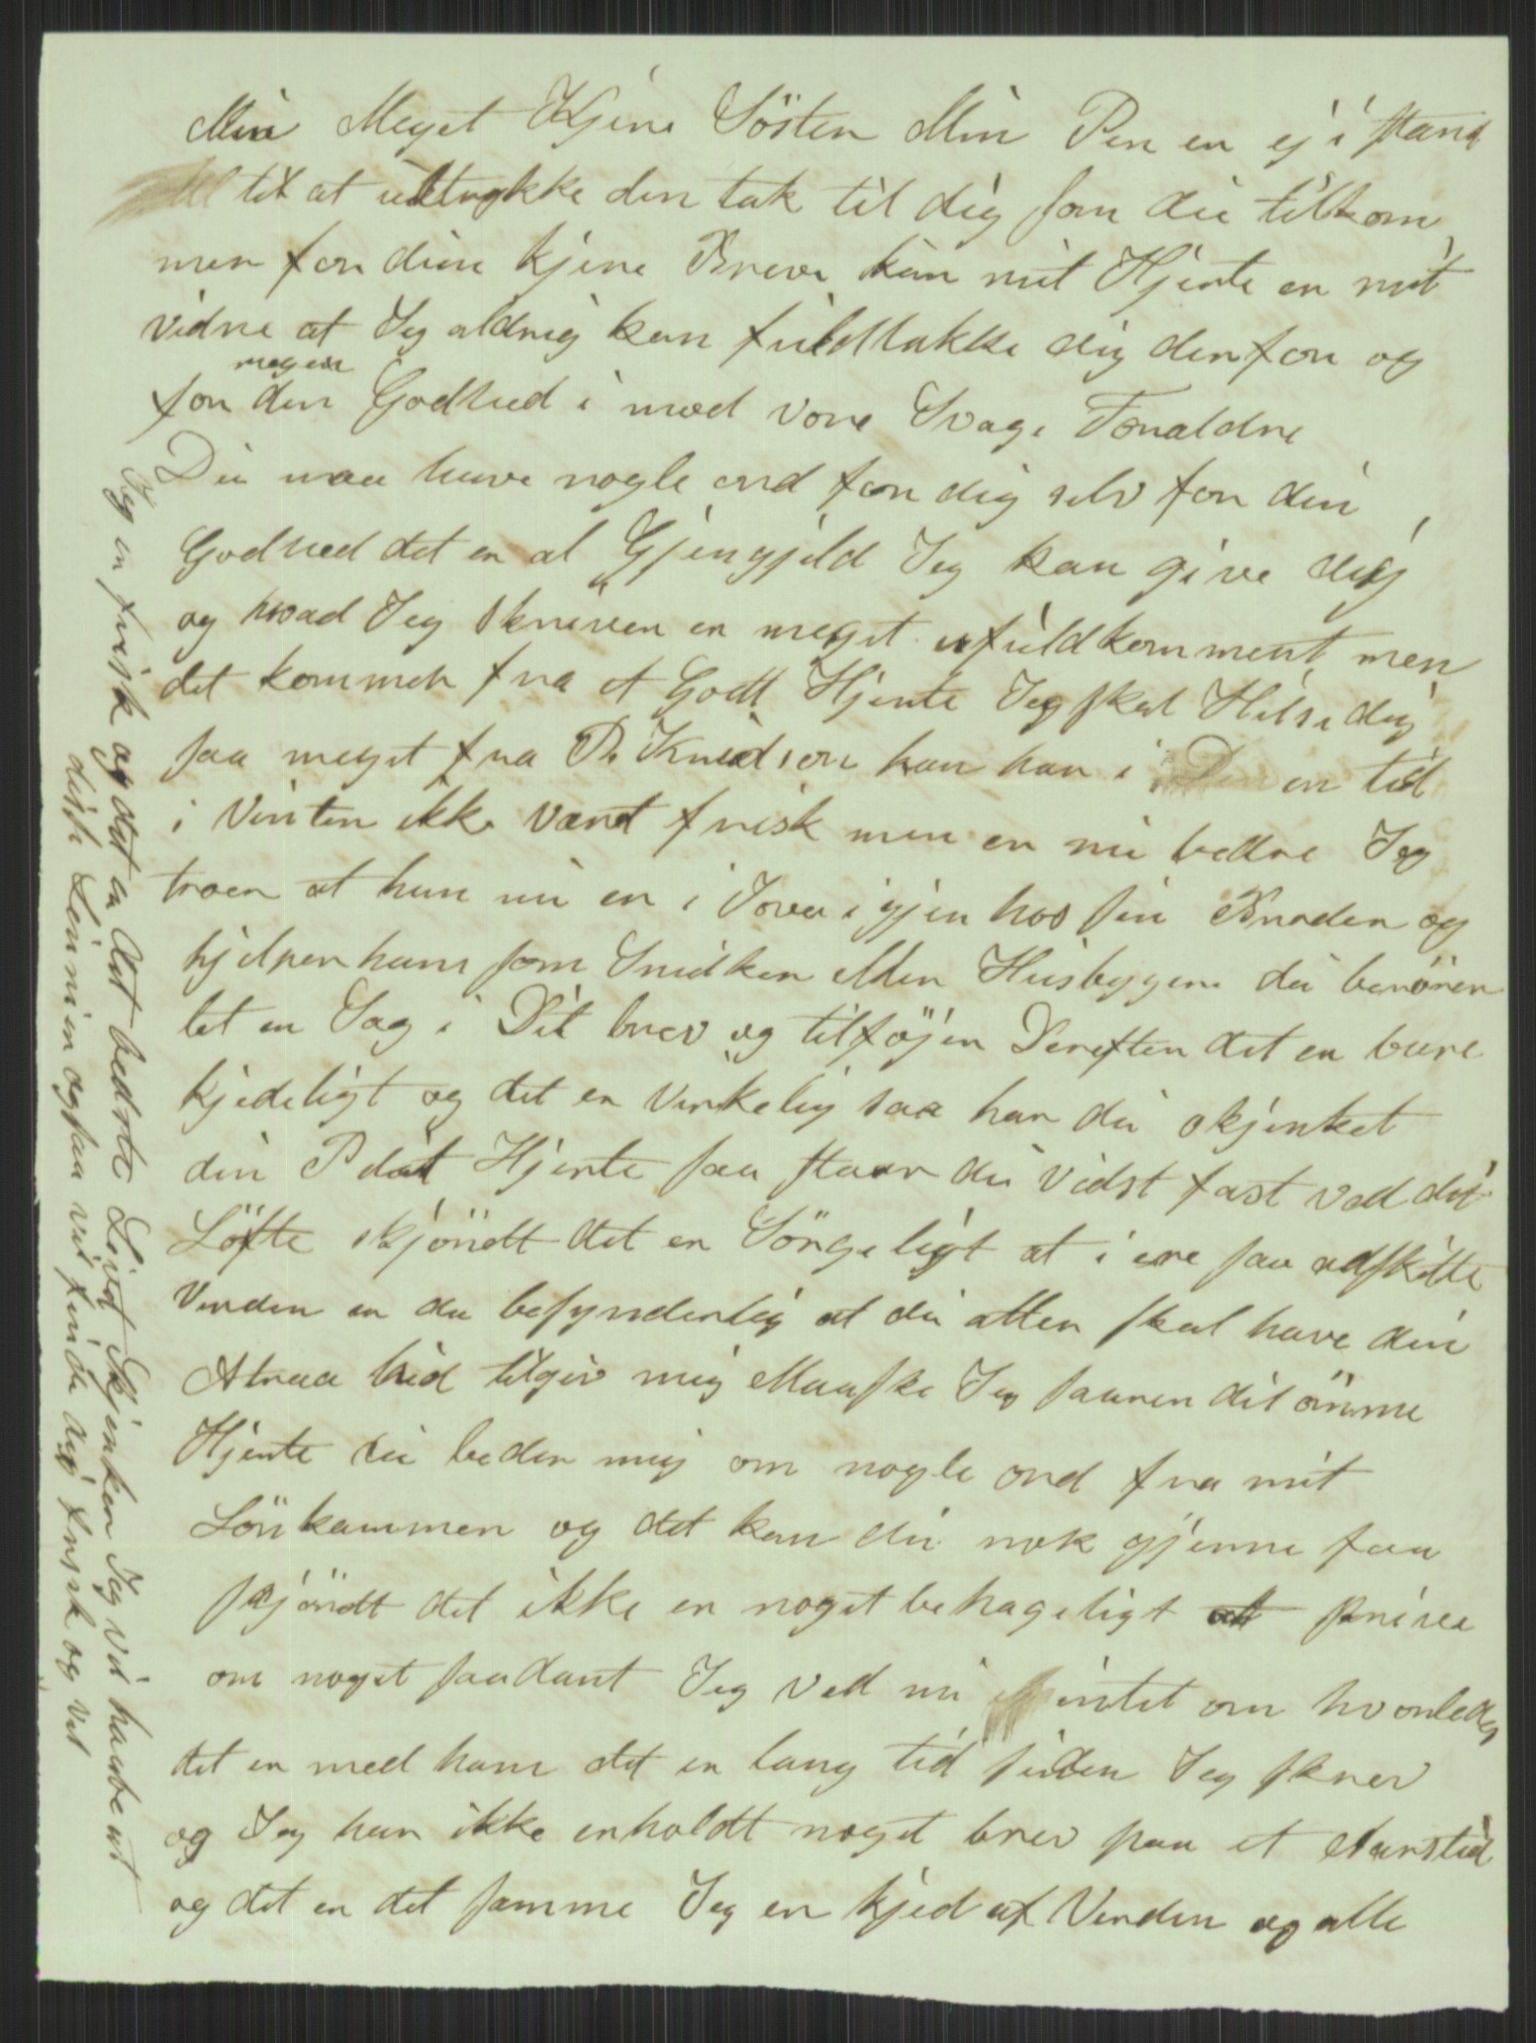 Min Meget Kjere Söster Min Pen er ej i stand
til at udtrykke den tak til dig som du tilkom
mer for dine kjere Breve kun mit Hjerte er mit
vidne at Jeg aldrig kan fuldtakke dig derfor og
for den megen Godhed i mod vore Svage Foraldre
Du maa have nogle ord for dig selv for din
Godhed det er al Gjengjeld Jeg kan give dig
og hvad Jeg skriver er meget ufuldkomment men
det kommer fra et Godt Hjerte Jeg skal Hilse dig
saa meget fra P. Knudson han har i en tid
i Vinter ikke vært frisk men er nu bedre Jeg
troer at han nu er i Iova igjen hos sin Broder og
hjelper ham som Snidker eller Husbygger du berörer
let en Sag i Dit brev og tilföjer Derefter det er bare
kjedeligt og det er virkelig saa har du skjenket
din P dit Hjerte saa staar du vidst fast ved dit
Löfte skjöndt det er Sörgeligt at i ere saa adskilte
Verden er da besynderlig at du atter skal have din
Atraa hid tilgiv mig Maaske Jeg saarer dit ömme
Hjerte du beder mig om nogle ord fra mit
Lönkammer og det kan du nok gjerne faa
skjöndt det ikke er noget behageligt at skrive
om noget saadant Jeg ved nu intet om hvorledes
det er med ham det er lang tid siden Jeg skrev
og Jeg har ikke erholdt noget brev paa et Aarstid
og det er det samme Jeg er kjed af Verden og alle
Jeg er frisk og det er det bedste Livet Skjenker Jeg vil haabe at
disse Linnier ogsaa vil finde dig frisk og vel